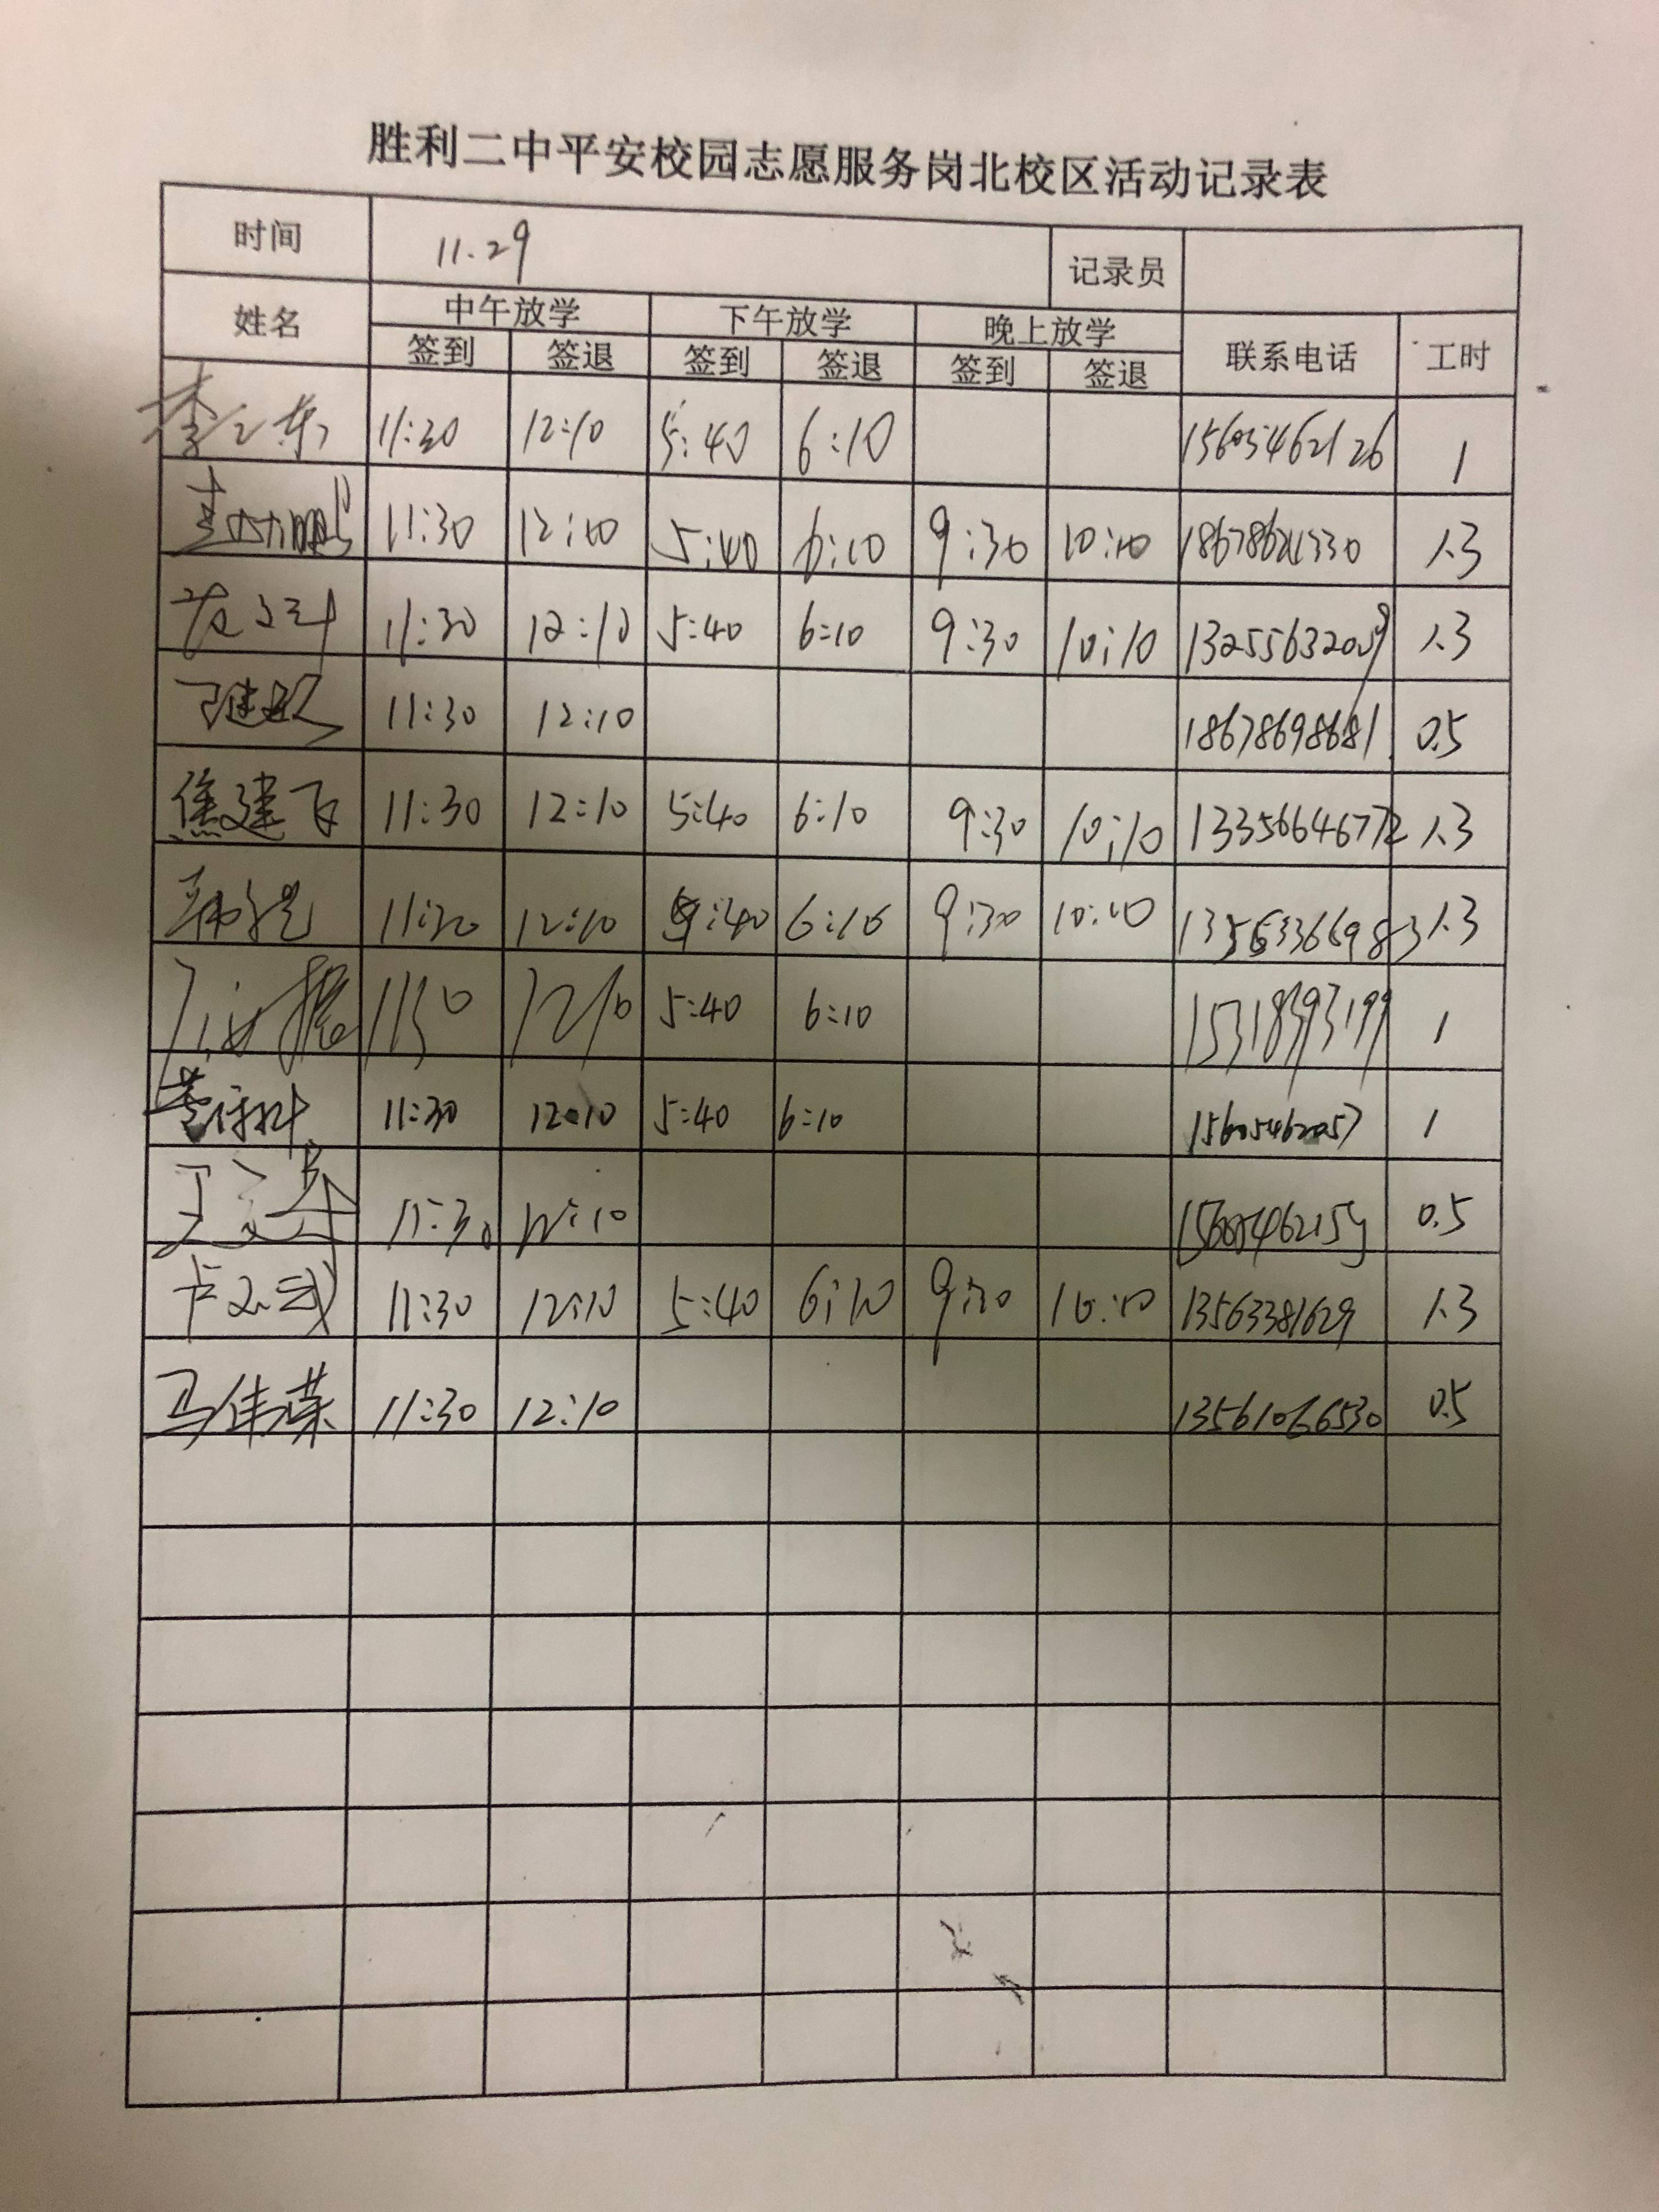 胜利二中平安校园志愿服务岗北校区活动记录表
时间 11.29 记录员
姓名 中午放学 下午放学 晚上放学 联系电话 工时
签到 签退 签到 签退 签到 签退
11:30 12:10 5:40 6:10 15605462126 1
11:30 12:10 5:40 6:10 9:30 10:10 1.3
11:30 12:10 5:40 6:10 9:30 10:10 13255632059 1.3
11:30 12:10 18678698681 0.5
焦建飞 11:30 12:10 5:40 6:10 9:30 10:10 13356646772 1.3
11:30 12:10 5:40 6:10 9:30 10:10 13563366983 1.3
1130 1210 5:40 6:10 15318393199 1
11:30 12:10 5:40 6:10 15605462057 1
11:30 12:10 0.5
11:30 12:10 5:40 6:10 9:30 10:10 13563381629 1.3
马伟荣 11:30 12:10 13561066530 0.5